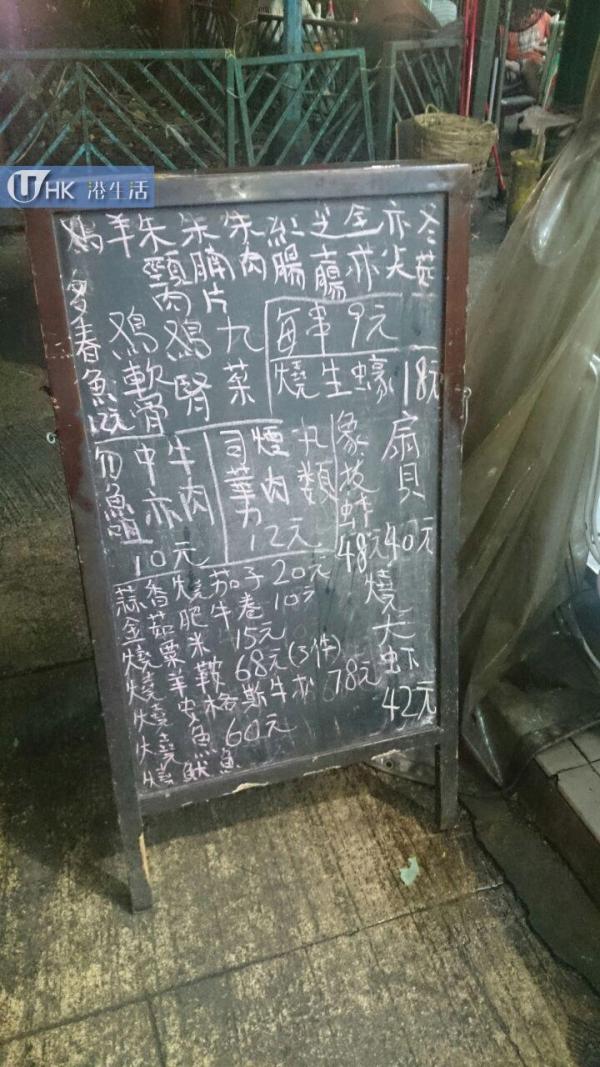 U HK 港生活
鷄
羊
朱頸肉
朱腩片
朱肉
紅腸
芝腸
全亦
亦尖
冬菇
多春魚12元
鷄軟骨
鷄腎
九菜
每串9元
燒生蠔18元
牛肉
中亦
10元
司華力
煙肉
丸類
12元
象拔蚌48元
扇貝40元
蒜香燒茄子20元
金菇肥牛卷10元
燒粟米15元
燒羊鞍68元(3件)
燒安格斯牛扒78元
燒魚60元
燒魷魚
燒大虾42元